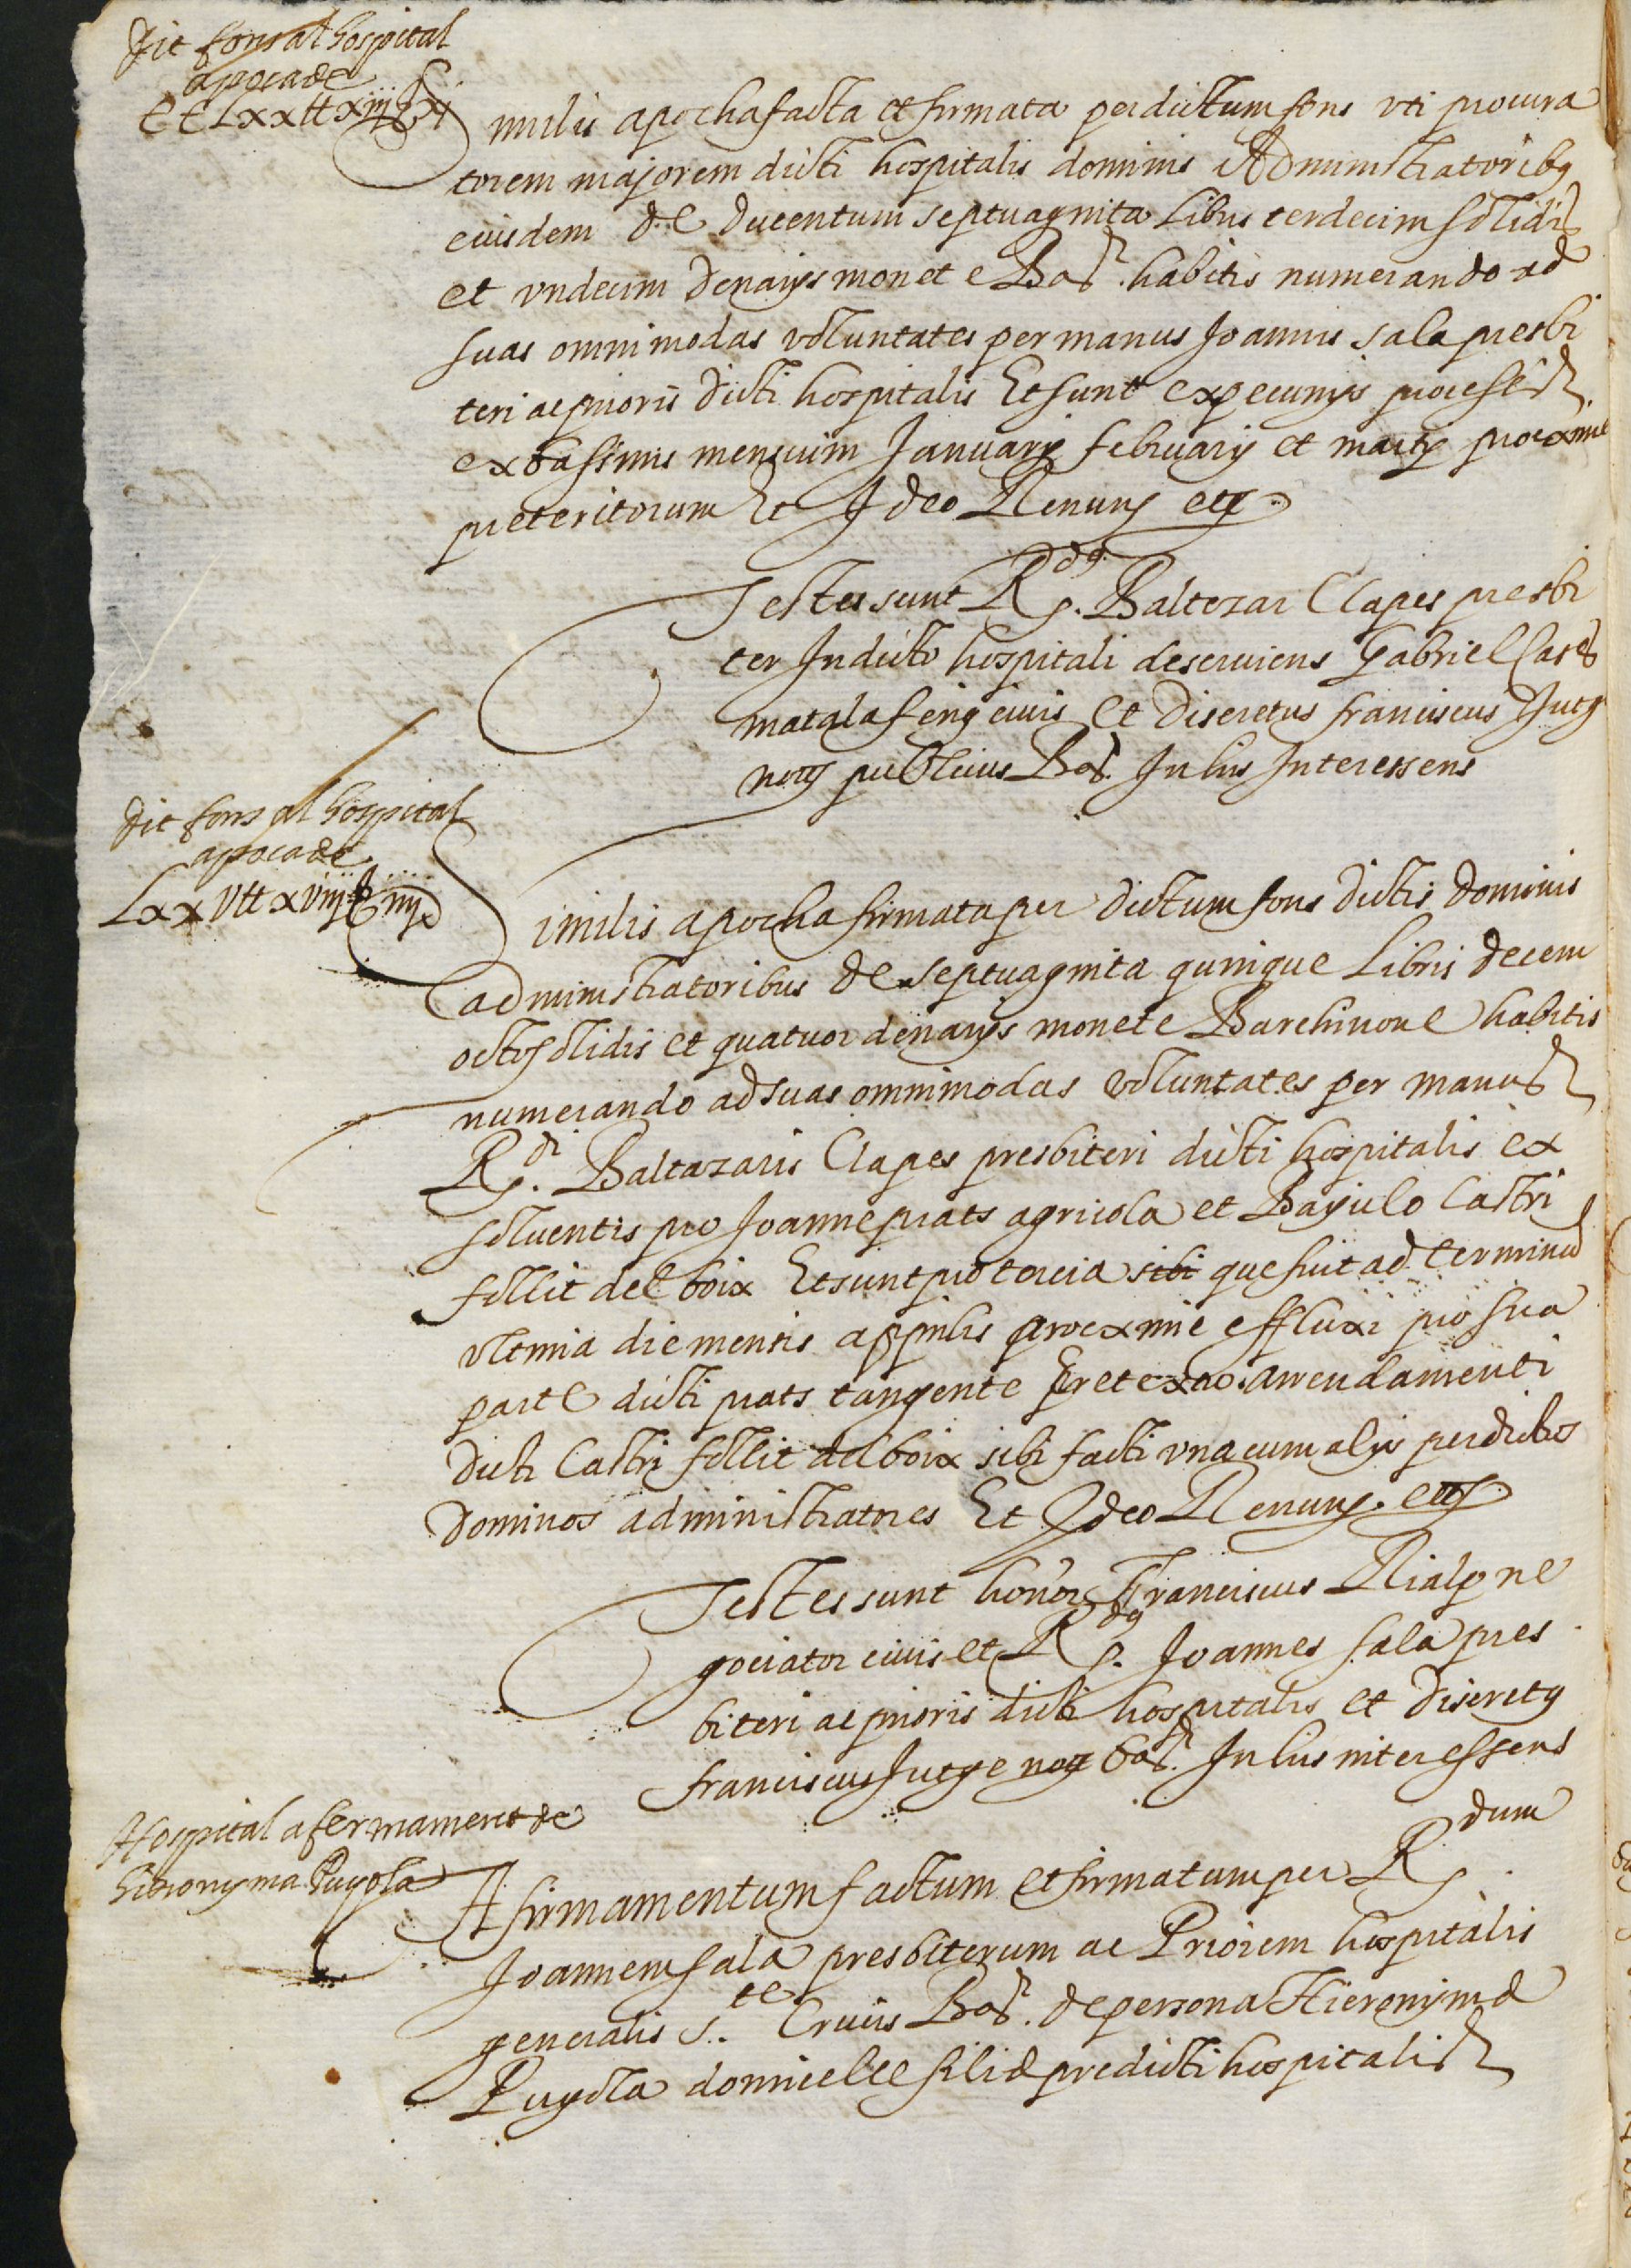 dit fons al hospital
apoca de
CCLxxtt xiij ß xj
Similis apocha facta et firmata per dictum fons uti procura
torem majorem dicti hospitalis dominis Administratoribq
eiusdem de ducentum septuaginta Libris terdecim solidis
et undecim denarijs monete Bar. habitis numerando ad
suas omnimodas voluntates per manus Joannis sala presbi
teri ac prioris dicti hospitalis Et sunt ex pecunijs process
ex bassinis mensium Januarij februarij et martij proxime
preteritorum Et Ideo Renunș etç.
Testes sunt Rdq. Baltezar Clapes presbi
ter In dicto hospitali deserviens Gabriel Cases
matalaferiq civis et Discretus franciscus Jutg
notș publicus Bar. In his Interessens
dit fons al hospital
apoca de
Lxxvtt xviij ß iiij d
Similis apocha firmata per dictum fons dictis dominis
administratoribus de septuaginta quinque Libris decem
octo solidis et quatuor denarijs monete Barchinone habitis
numerando ad suas omnimodas voluntates per manus
Rdi. Baltazaris Clapes presbiteri dicti hospitalis ex
solventis pro Joanne prats agricola et Bajulo Castri
follit del boix Et sunt pro tercia sibi que fuit ad terminũ
ultimia die mensis apprilis proxime effluxi pro sua
parte dicti prats tangente pretexto arrendamenti
dicti Castri follit del boix sibi facti una cum alijs per dictos
dominos administratores Et Ideo Renunș. etç.
Testes sunt honor. Franciscus Rialp ne
gociator civis et Rdq. Joannes sala pres
biteri ac prioris dicti hospitalis et discretq
franciscus Jutge notș bar. In his interessens
Hospital afermament de
hieronyma Puyola
Afirmamentum factum et firmatum per Rdum
Joannem sala presbiterum ac Priorem hospitalis
generalis S.te Crucis Bar. de persona Hieronyma
Puyola domicelle filie predicti hospitalis